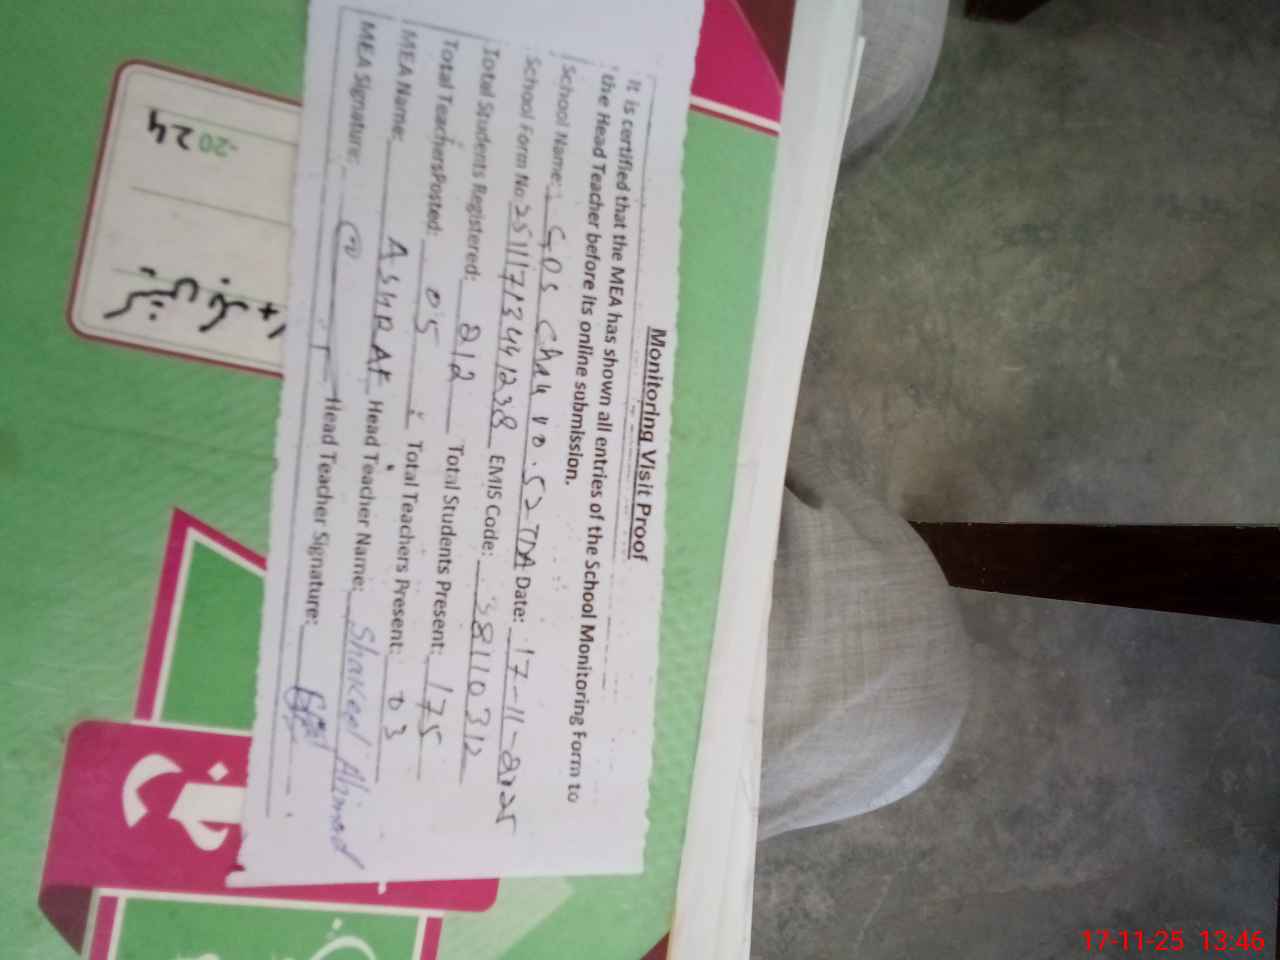 Monitoring Visit Proof
It is certified that the MEA has shown all entries of the School Monitoring Form to
the Head Teacher before its online submission.
School Name: GPS Chak No. 52 TDA Date: 17-11-2025
School Form No 25111713441238 EMIS Code: 38110312
Total Students Registered: 212 Total Students Present: 175
Total Teachers Posted: 05 Total Teachers Present: 03
MEA Name: ASHRAF Head Teacher Name: Shakeel Ahmad
MEA Signature: Head Teacher Signature:
2024
17-11-25 13:46